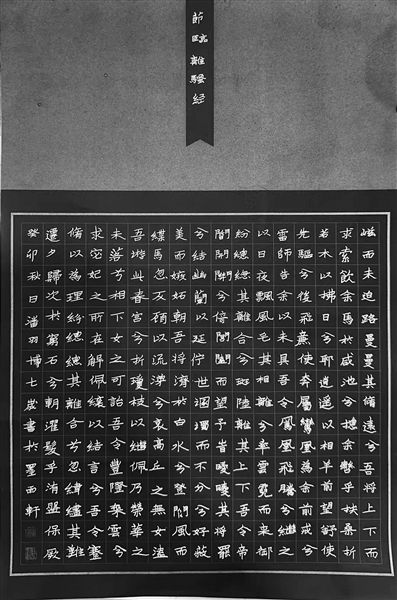 節臨離騷經
嵫而未迫路曼曼其脩遠兮吾將上下而
求索飲余馬於咸池兮揔余轡乎扶桑折
若木以拂日兮聊逍遙以相羊前望舒使
先驅兮後飛廉使奔屬鸞凰為余前戒兮
雷師告余以未具吾令鳳凰飛騰兮繼之
以日夜飄風屯其相離兮率雲霓而來御
紛總總其離合兮斑陸離其上下吾令帝
閽開關兮倚閶闔而望予時曖曖其將罷
兮結幽蘭以延佇世溷濁而不分兮好蔽
美而嫉妒朝吾將濟於白水兮登閬風而
緤馬忽反顧以流涕兮哀高丘之無女溘
吾遊此春宮兮折瓊枝以繼佩及榮華之
未落兮相下女之可詒吾令豐隆椉雲兮
求宓妃之所在解佩纕以結言兮吾令蹇
脩以為理紛總總其離合兮忽緯繣其難
遷夕歸次於窮石兮朝濯髮乎洧盤保厥
癸卯秋日潘羽博七歲書於墨西軒